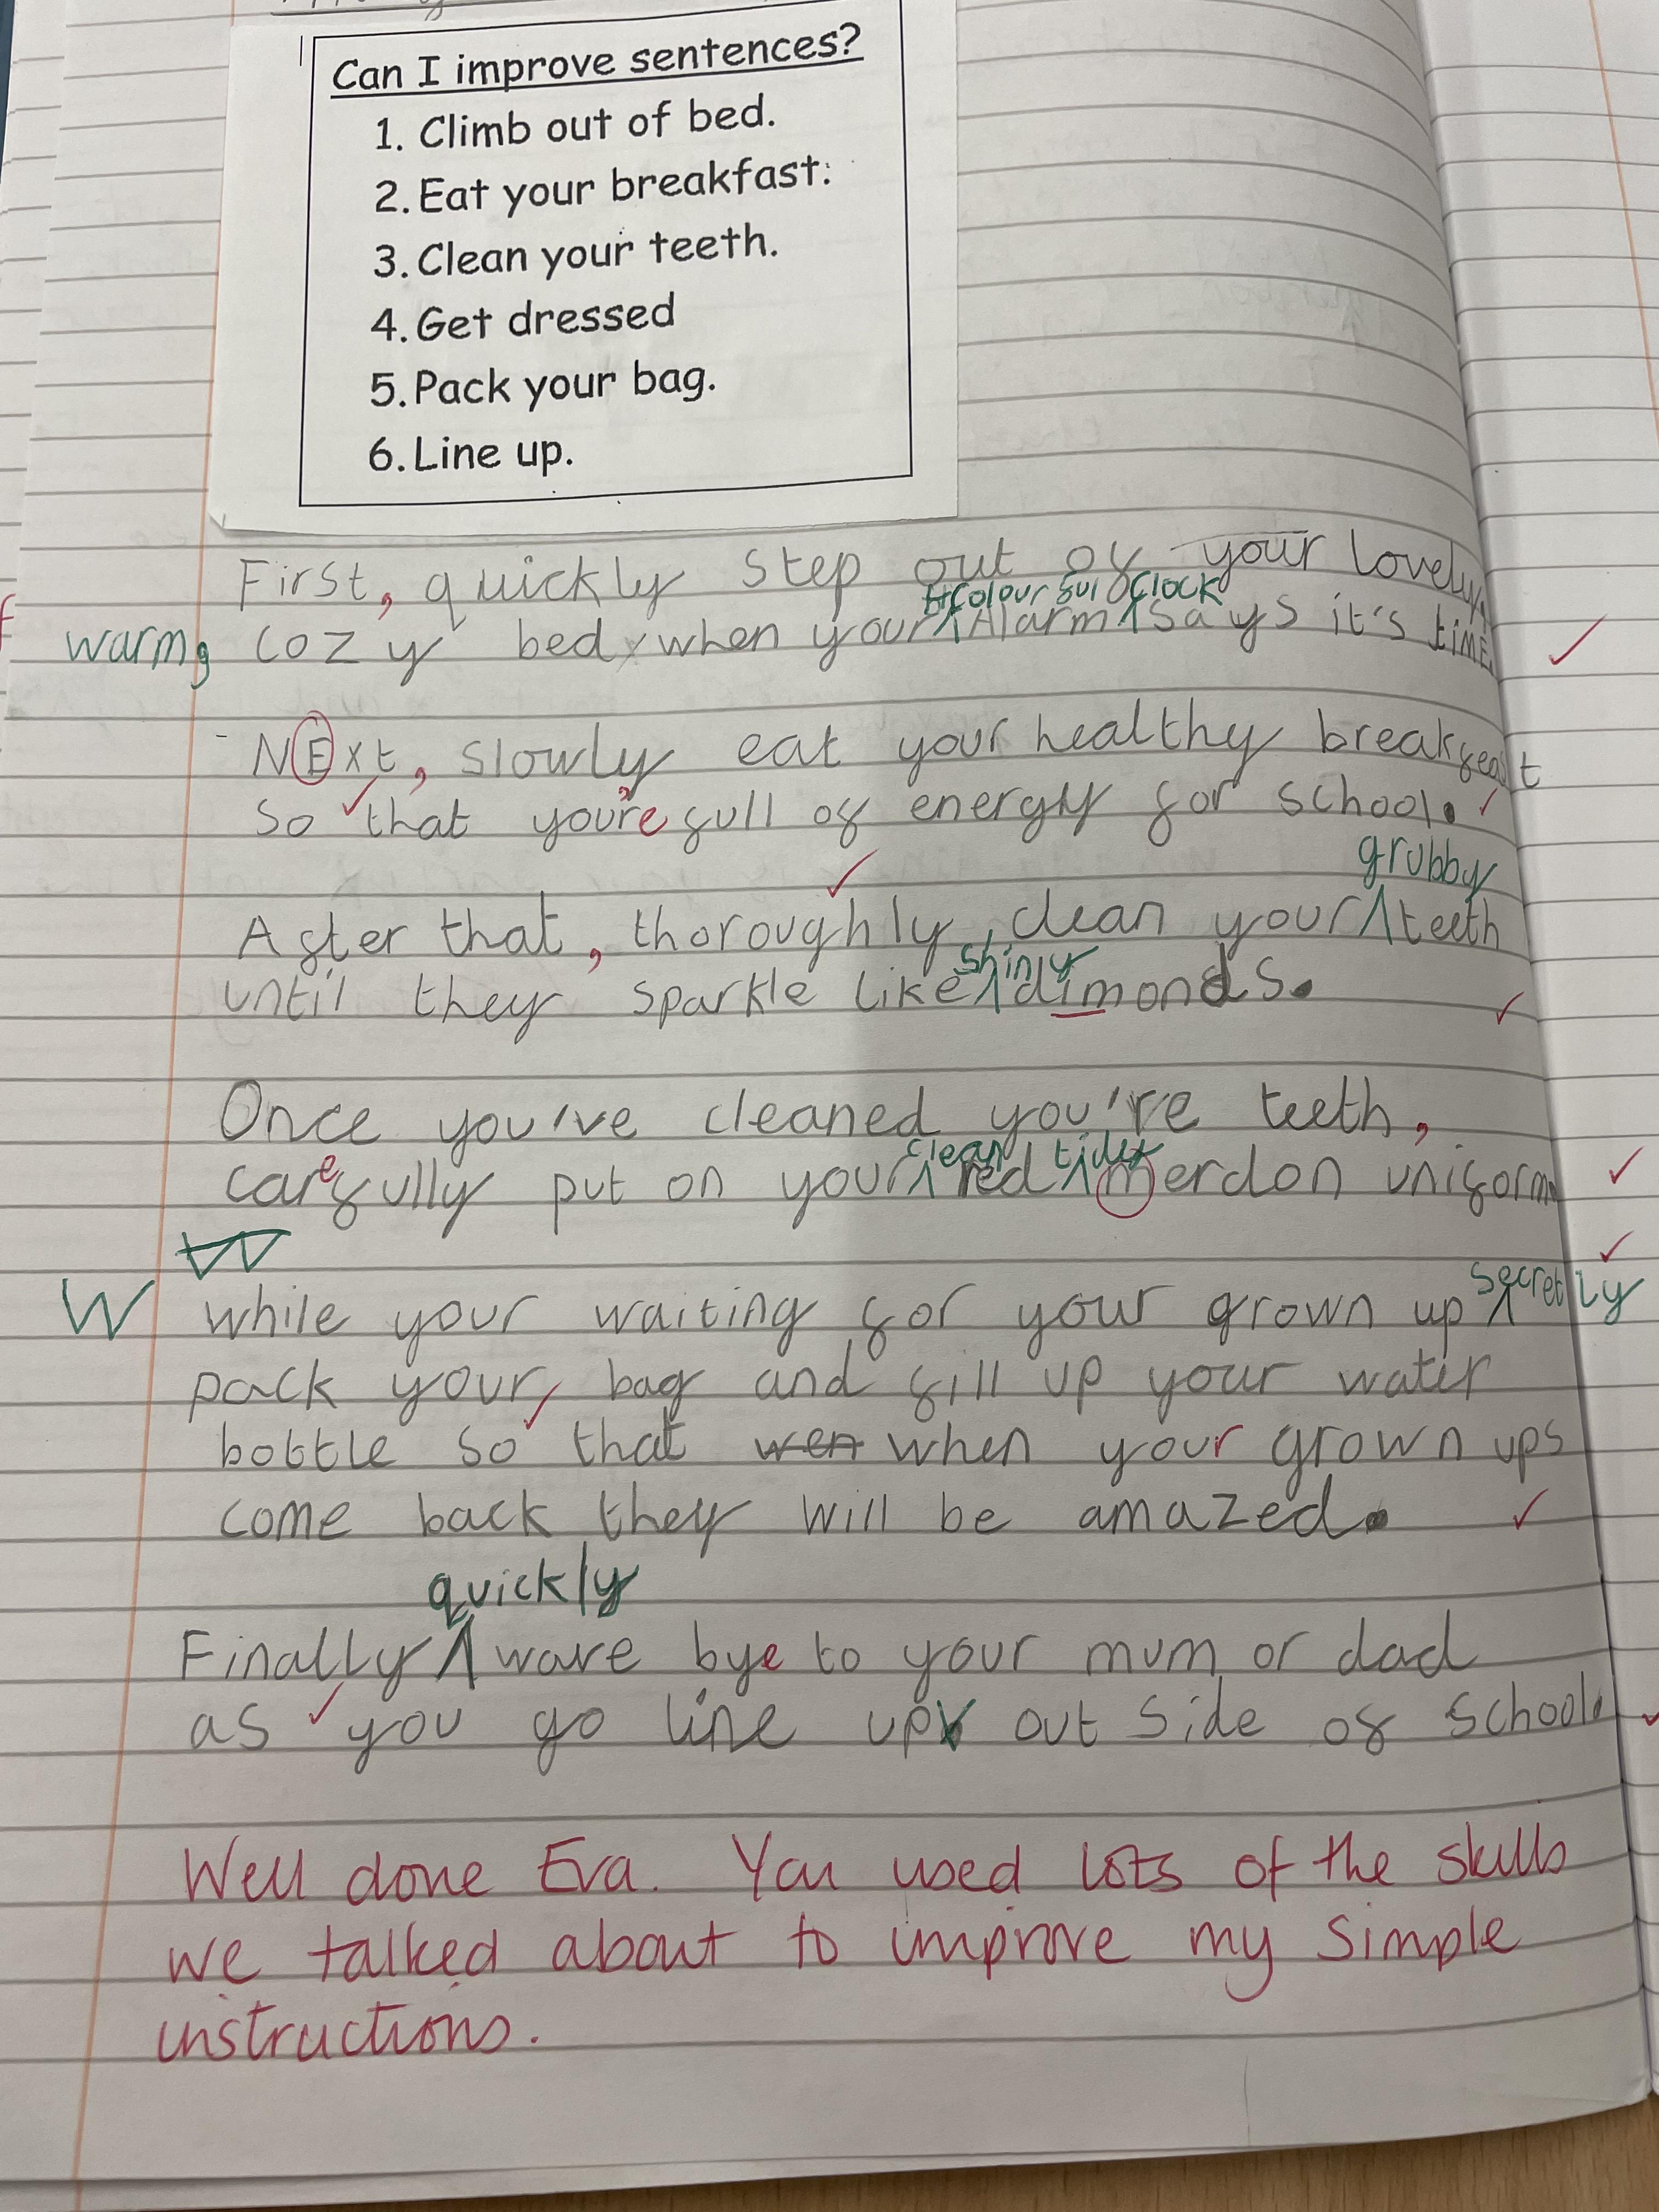 Can I improve sentences?
1. Climb out of bed.
2. Eat your breakfast.
3. Clean your teeth.
4. Get dressed
5. Pack your bag.
6. Line up.
First, quickly step out of your lovely,
colourful clock
warm, cozy bed when your Alarm says it's time.
NExt, slowly eat your healthy breakfeast
so that you're full of energy for school.
grubby
After that, thoroughly, clean your teeth
shiny
until they sparkle like dimonds.
Once you've cleaned you're teeth,
clean tidy
carefully put on your red merdon uniform
W while your waiting for your grown up secretly
pack your bag and fill up your water
bottle so that wen when your grown ups
come back they will be amazed.
quickly
Finally wave bye to your mum or dad
as you go line up out side of school.
Well done Eva. You used lots of the skills
we talked about to improve my simple
instructions.